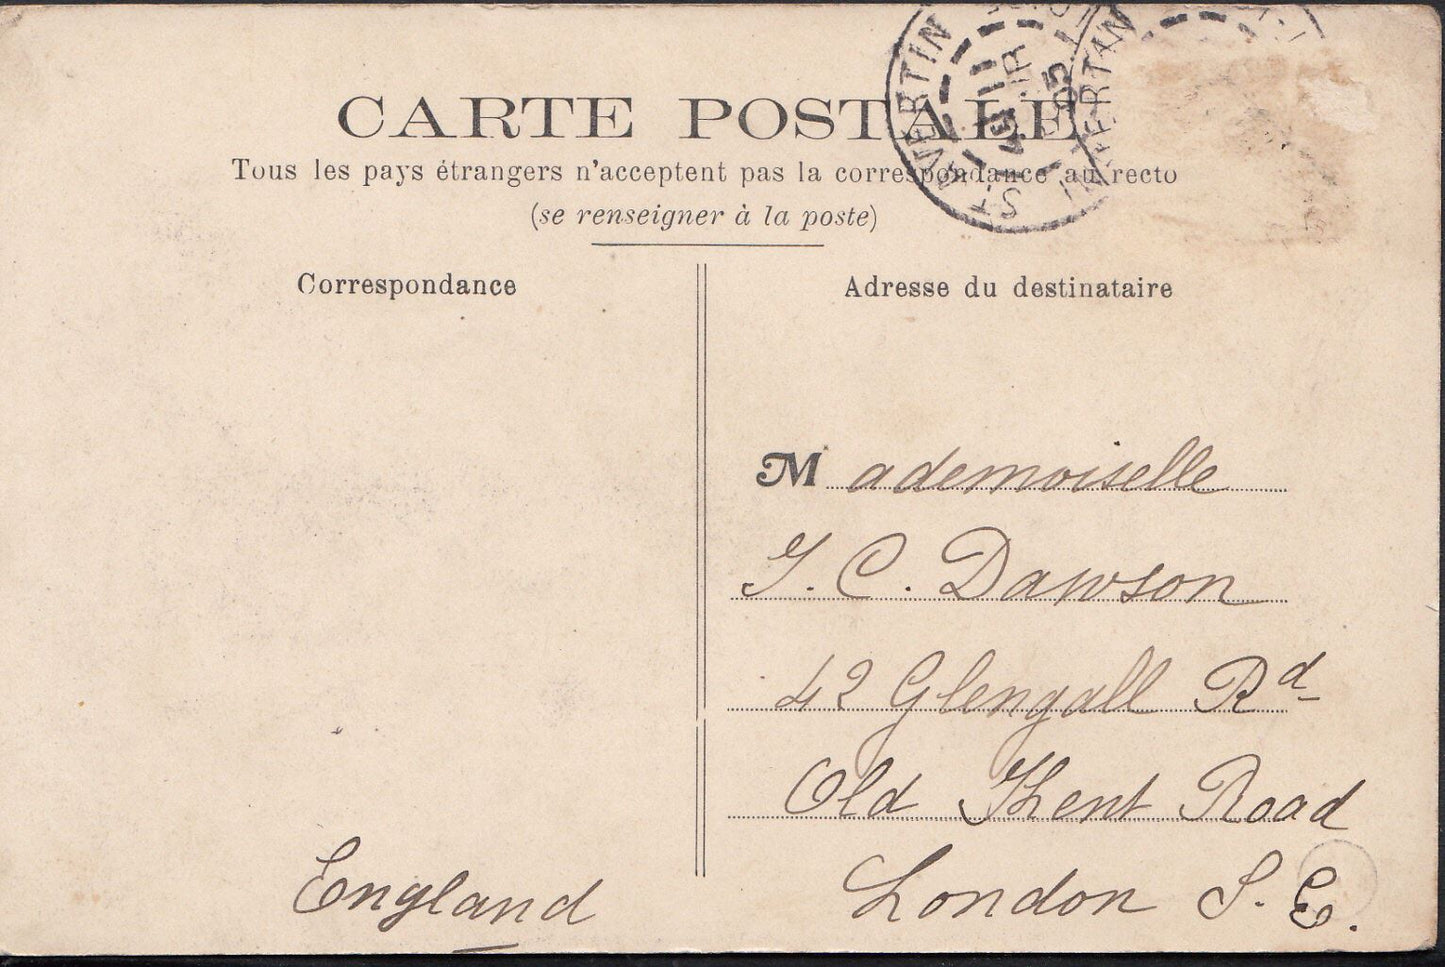 CARTE POSTALE
Tous les pays étrangers n'acceptent pas la correspondance au recto
(se renseigner à la poste)
Correspondance
Adresse du destinataire
Mademoiselle
J. C. Dawson
42 Glengall Rd
Old Kent Road
London S. E.
England
ST AVERTIN